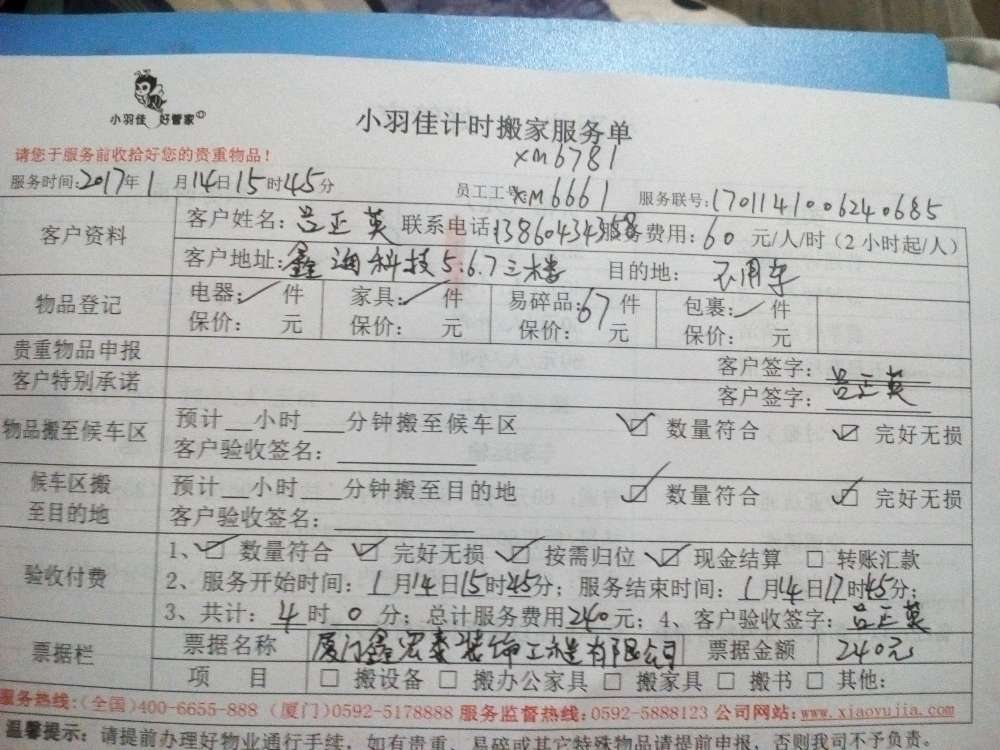 小羽佳 好管家
小羽佳计时搬家服务单
xm6781
请您于服务前收拾好您的贵重物品!
服务时间:2017年1月14日15时45分 员工工号:xm6661 服务联号:1701141006240685
客户资料
客户姓名:吕正英 联系电话: 服务费用:60元/人/时(2小时起/人)
客户地址:鑫润科技5.6.7三楼 目的地:不用车
物品登记
电器: 件 家具: 件 易碎品:67件 包裹: 件
保价: 元 保价: 元 保价: 元 保价: 元
贵重物品申报 客户签字:吕正英
客户特别承诺 客户签字:
物品搬至候车区
预计__小时___分钟搬至候车区 ☑ 数量符合 ☑ 完好无损
客户验收签名:
候车区搬至目的地
预计__小时___分钟搬至目的地 ☑ 数量符合 ☑ 完好无损
客户验收签名:
验收付费
1、☑ 数量符合 ☑ 完好无损 ☑ 按需归位 ☑ 现金结算 □ 转账汇款
2、服务开始时间:1月14日15时45分;服务结束时间:1月14日17时45分;
3、共计:4时0分;总计服务费用240元;4、客户验收签字:吕正英
票据栏
票据名称 厦门鑫宏泰装饰工程有限公司 票据金额 240元
项 目 □ 搬设备 □ 搬办公家具 □ 搬家具 □ 搬书 □ 其他:
服务热线:(全国)400-6655-888 (厦门)0592-5178888 服务监督热线:0592-5888123 公司网站:www.xiaoyujia.com
温馨提示:请提前办理好物业通行手续,如有贵重、易碎或其它特殊物品请提前申报,否则我司不予负责。